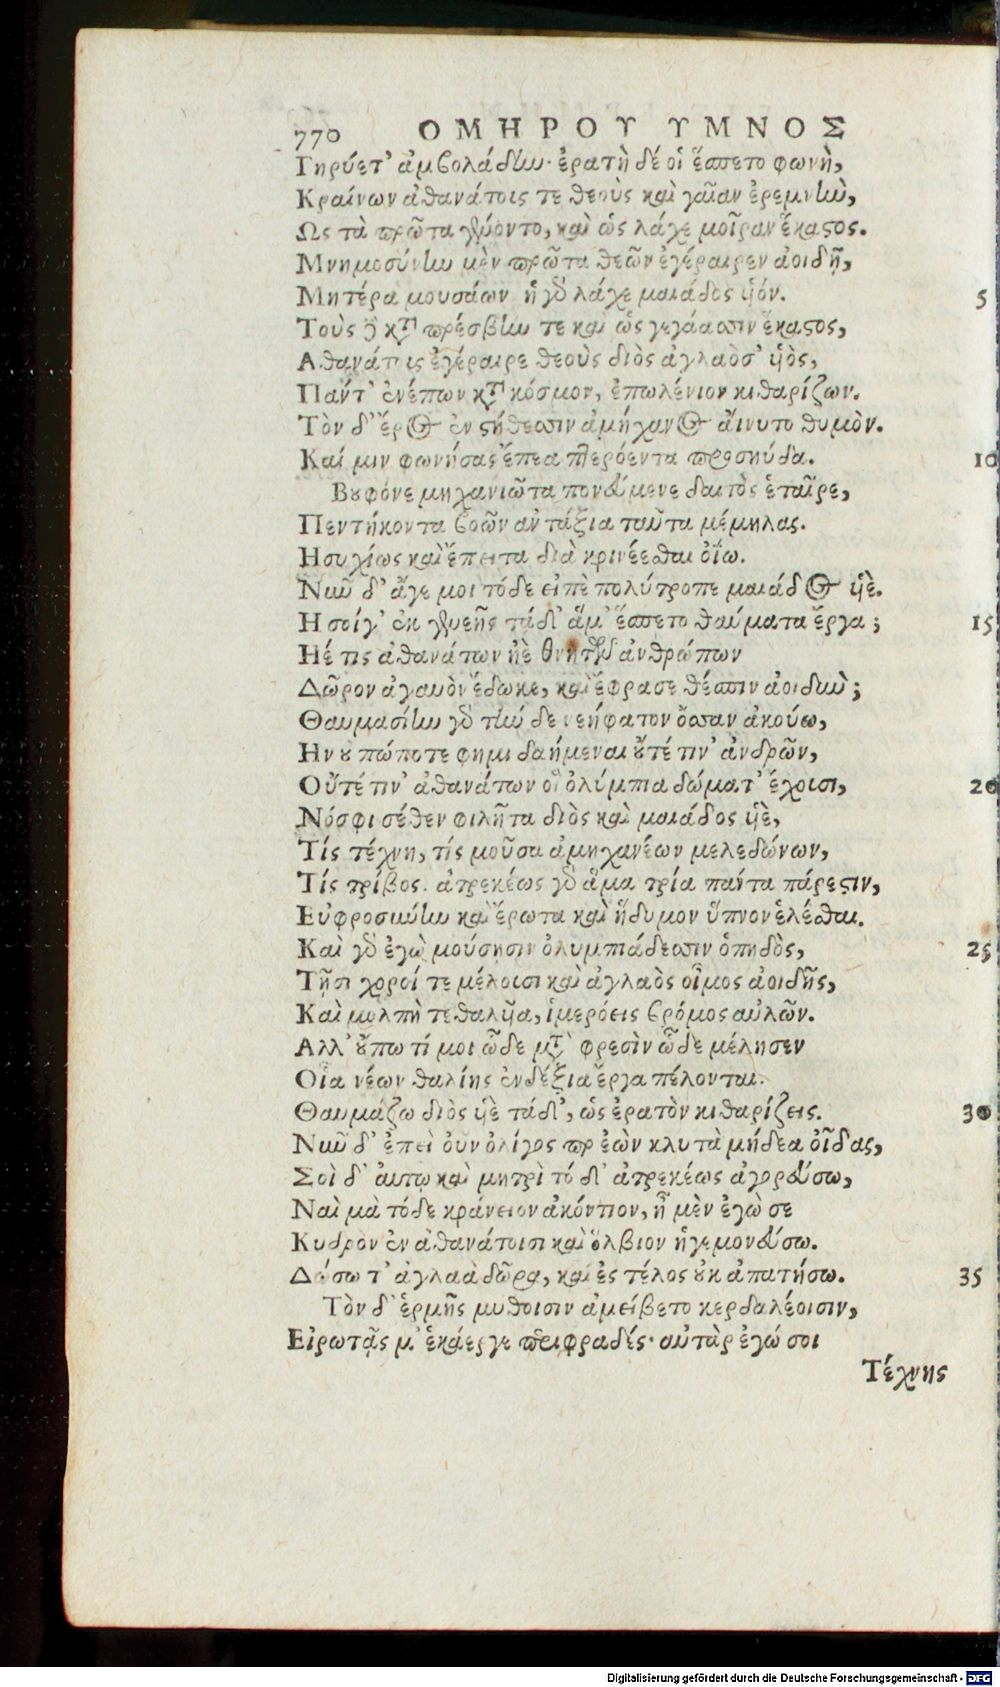 770 ΟΜΗΡΟΥ ΥΜΝΟΣ
Γηρύετ' ἀμβολάδην· ἐρατὴ δέ οἱ ἕσπετο φωνὴ,
Κραίνων ἀθανάτοις τε θεοὺς καὶ γαῖαν ἐρεμνὴν,
Ως τὰ πρῶτα γένοντο, καὶ ὡς λάχε μοῖραν ἕκαστος.
Μνημοσύνην μὲν πρῶτα θεῶν ἐγέραιρεν ἀοιδῇ,
Μητέρα μουσάων ἡ γὰρ λάχε μαιάδος υἱόν. 5
Τοὺς δὲ κατὰ πρέσβιν τε καὶ ὡς γεγάασιν ἕκαστος,
Αθανάτοις ἐγέραιρε θεοὺς διὸς ἀγλαὸσ' υἱὸς,
Πάντ' ἐνέπων κατὰ κόσμον, ἐπωλένιον κιθαρίζων.
Τὸν δ' ἔρος ἐν στήθεσσιν ἀμήχανος αἴνυτο θυμὸν.
Καί μιν φωνήσας ἔπεα πτερόεντα προσηύδα. 10
Βουφόνε μηχανιῶτα πονεύμενε δαιτὸς ἑταῖρε,
Πεντήκοντα βοῶν ἀντάξια ταῦτα μέμηλας.
Ησυχίως καὶ ἔπειτα διὰ κρινέεσθαι ὀΐω.
Νῦν δ' ἄγε μοι τόδε εἰπὲ πολύτροπε μαιάδος υἱὲ.
Η σοίγ' ἐκ γενεῆς τάδ' ἅμ' ἕσπετο θαύματα ἔργα; 15
Ηέ τις ἀθανάτων ἠὲ θνητῶν ἀνθρώπων
Δῶρον ἀγαυὸν ἔδωκε, καὶ ἔφρασε θέσπιν ἀοιδήν;
Θαυμασίην γὰρ τήν δε νεήφατον ὄσσαν ἀκούω,
Ην οὐ πώποτε φημι δαήμεναι οὔτέ τιν' ἀνδρῶν,
Οὔτέ τιν' ἀθανάτων οἳ ὀλύμπια δώματ' ἔχουσι, 20
Νόσφι σέθεν φιλῆτα διὸς καὶ μαιάδος υἱὲ,
Τίς τέχνη, τίς μοῦσα ἀμηχανέων μελεδώνων,
Τίς τρίβος. ἀτρεκέως γὰρ ἅμα τρία πάντα πάρεστιν,
Εὐφροσύνην καὶ ἔρωτα καὶ ἥδυμον ὕπνον ἑλέσθαι.
Καὶ γὰρ ἐγὼ μούσῃσιν ὀλυμπιάδεσσιν ὀπηδὸς, 25
Τῇσι χοροί τε μέλουσι καὶ ἀγλαὸς οἶμος ἀοιδῆς,
Καὶ μολπὴ τεθαλυῖα, ἱμερόεις βρόμος αὐλῶν.
Αλλ' οὔπω τί μοι ὧδε μετὰ φρεσὶν ὧδε μέλησεν
Οἷα νέων θαλίης ἐνδέξια ἔργα πέλονται.
Θαυμάζω διὸς υἱὲ τάδ', ὡς ἐρατὸν κιθαρίζεις. 30
Νῦν δ' ἐπεὶ οὖν ὀλίγος περ ἐὼν κλυτὰ μήδεα οἶδας,
Σοὶ δ' αὐτῳ καὶ μητρὶ τό δ' ἀτρεκέως ἀγορεύσω,
Ναὶ μὰ τόδε κράνειον ἀκόντιον, ἦ μὲν ἐγὼ σε
Κυδρον ἐν ἀθανάτοισι καὶ ὄλβιον ἡγεμονεύσω.
Δώσω τ' ἀγλαὰ δῶρα, καὶ ἐς τέλος οὐκ ἀπατήσω. 35
Τὸν δ' ἑρμῆς μύθοισιν ἀμείβετο κερδαλέοισιν,
Εἰρωτᾷς μ' ἑκάεργε περιφραδές· αὐτὰρ ἐγώ σοι
Τέχνης
Digitalisierung gefördert durch die Deutsche Forschungsgemeinschaft - DFG